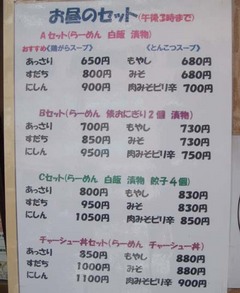 お昼のセット(午後3時まで)
Aセット(らーめん 白飯 漬物)
おすすめ(鶏がらスープ) (とんこつスープ)
あっさり 650円 もやし 680円
すだち 800円 みそ 680円
にしん 900円 肉みそピリ辛 700円
Bセット(らーめん 俵おにぎり2個 漬物)
あっさり 700円 もやし 730円
すだち 850円 みそ 730円
にしん 950円 肉みそピリ辛 750円
Cセット(らーめん 白飯 漬物 餃子4個)
あっさり 800円 もやし 830円
すだち 950円 みそ 830円
にしん 1050円 肉みそピリ辛 850円
チャーシュー丼セット(らーめん チャーシュー丼)
あっさり 850円 もやし 880円
すだち 1000円 みそ 880円
にしん 1100円 肉みそピリ辛 900円